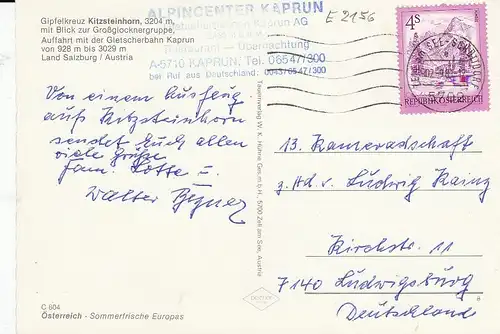 Gipfelkreuz Kitzsteinhorn, 3204 m,
mit Blick zur Großglocknergruppe,
Auffahrt mit der Gletscherbahn Kaprun
von 928 m bis 3029 m
Land Salzburg / Austria
ALPINCENTER KAPRUN
Kaprun AG
Restaurant — Übernachtung
A-5710 KAPRUN, Tel. 06547/300
bei Ruf aus Deutschland: 0043/6547/300
E 2156
4S
REPUBLIK ÖSTERREICH
Von einem Ausflug
aufs Kitzsteinhorn
sendet Euch allen
viele Grüße
Fam. Lotte u.
Walter
Tauernverlag W. K. Hühne Ges.m.b.H., 5700 Zell am See, Austria
13. Kameradschaft
z. Hd. v. Ludwig Kainz
Kirchstr. 11
7140 Ludwigsburg
Deutschland
C 604
Österreich - Sommerfrische Europas